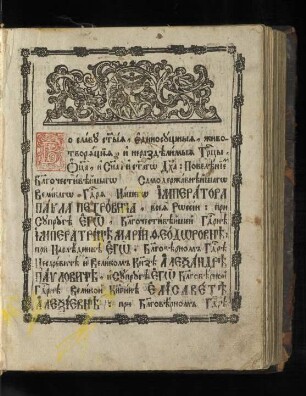 Во славу ст҃ыѧ, єдиносущныѧ, живо-
творѧщїѧ, и нераздѣлимыѧ Трⷪ҇цы,
Ѻц҃а, и Сн҃а, и ст҃агѡ Дх҃а: Повелѣнїемъ
Бл҃гочестивѣйшагѡ Самодержавнѣйшагѡ
Великагѡ Гдⷭ҇рѧ Нашегѡ ІМПЕРАТОРА
ПАѴЛА ПЕТРОВИЧА, всеѧ Рѡссїи: при
Сꙋпрꙋгѣ ЄГѠ, Бл҃гочестивѣйшей Гдⷭ҇рнѣ
ІМПЕРАТРИЦѢ МАРІИ ѲЕОДѠРОВНѢ:
при Наслѣдникѣ ЄГѠ, Бл҃говѣрномъ Гдⷭ҇рѣ
Цесаревичѣ и Великомъ Кнѧ҃зѣ АЛЕѮАНДРѢ
ПАѴЛОВИЧѢ, и сꙋпрꙋгѣ ЄГѠ Бл҃говѣрной
Гдⷭ҇рнѣ Великой Кнѧги́нѣ ЄЛІСАВЕТѢ
АЛЕѮІЕВНѢ: при Бл҃говѣрномъ Гдⷭ҇рѣ